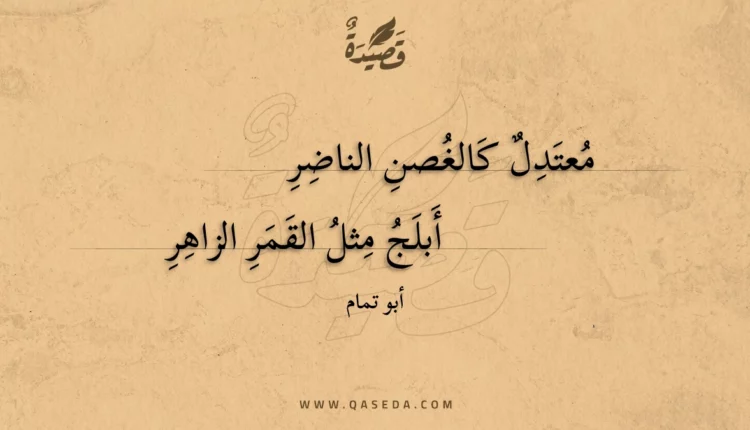 قَصِيْدَةٌ
مُعتَدِلٌ كَالغُصنِ الناضِرِ
أَبلَجُ مِثلُ القَمَرِ الزاهِرِ
أبو تمام
WWW.QASEDA.COM